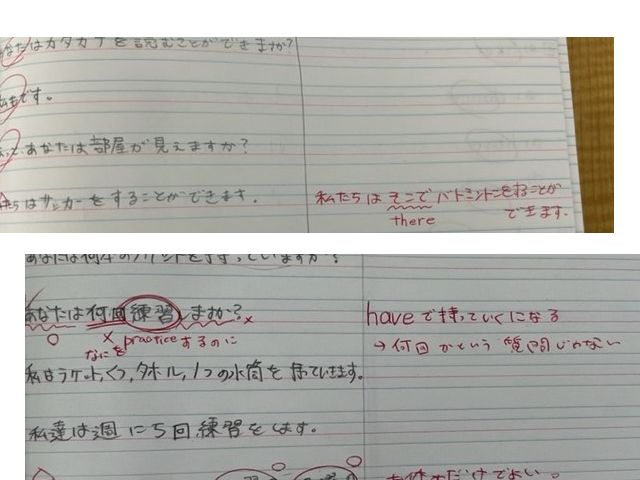 はカタカナを読むことができますか?
私もです。
あなたは部屋が見えますか?
たちはサッカーをすることができます。
私たちは そこで バドミントンをすることが
できます.
there
あなたは何回練習しますか?
なにを practiceするのに
have で持っていくになる
→何回 かという 質問じゃない
私はラケット,くつ,タオル,1つの水筒を持っていきます。
私達は週に5回練習をします。